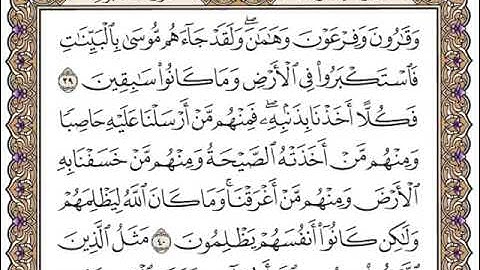 وَقَٰرُونَ وَفِرْعَوْنَ وَهَٰمَٰنَ ۖ وَلَقَدْ جَآءَهُم مُّوسَىٰ بِٱلْبَيِّنَٰتِ
فَٱسْتَكْبَرُوا۟ فِى ٱلْأَرْضِ وَمَا كَانُوا۟ سَٰبِقِينَ ٣٩
فَكُلًّا أَخَذْنَا بِذَنۢبِهِۦ ۖ فَمِنْهُم مَّنْ أَرْسَلْنَا عَلَيْهِ حَاصِبًا
وَمِنْهُم مَّنْ أَخَذَتْهُ ٱلصَّيْحَةُ وَمِنْهُم مَّنْ خَسَفْنَا بِهِ
ٱلْأَرْضَ وَمِنْهُم مَّنْ أَغْرَقْنَا ۚ وَمَا كَانَ ٱللَّهُ لِيَظْلِمَهُمْ
وَلَٰكِن كَانُوٓا۟ أَنفُسَهُمْ يَظْلِمُونَ ٤٠ مَثَلُ ٱلَّذِينَ